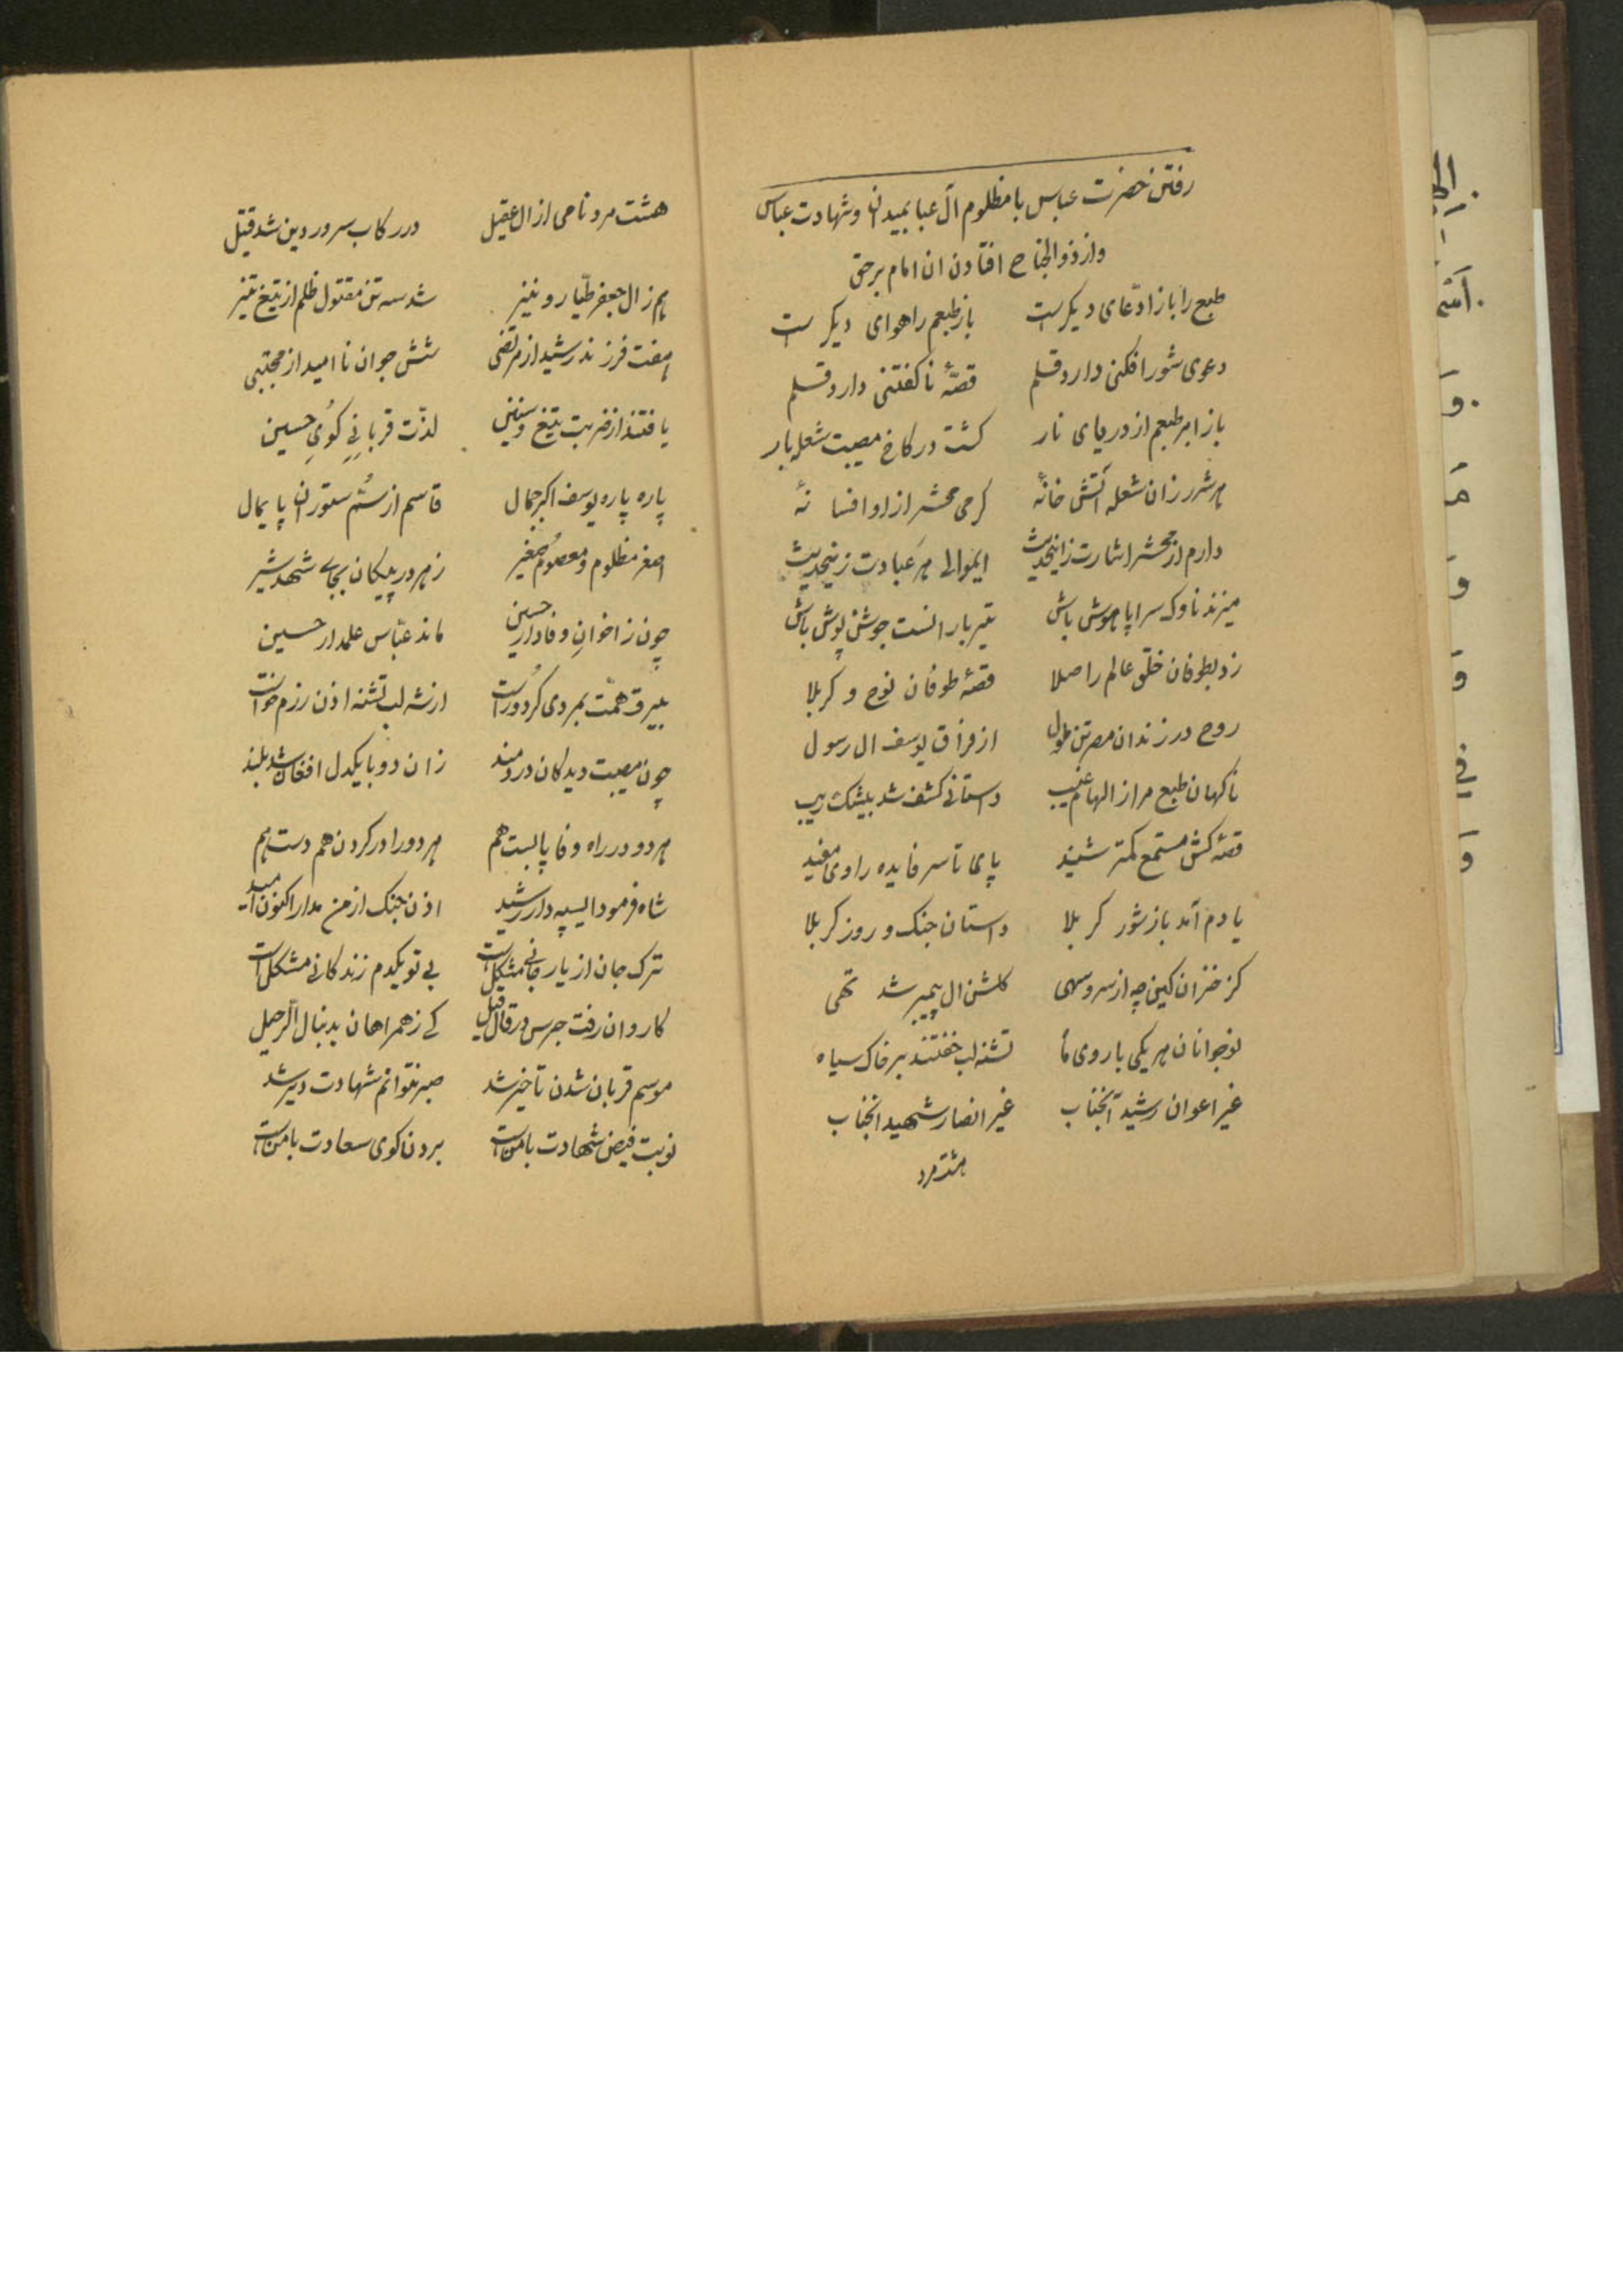 رفتن حضرت عباس با مظلوم آل عبا بمیدان و شهادت عباس
و از ذوالجناح افتادن ان امام برحق
طبع را باز ادّعای دیکرست باز طبعم را هوای دیکرست
دعوی شور افکنی دارد قلم قصّهٔ ناکفتنی دارد قلم
باز ابر طبعم از دریای نار کشت در کاخ مصیبت شعله بار
هر شرر زان شعله آتش خانهٔ کرمی محشر از او افسانهٔ
دارم از محشر اشارت زاینحدیث ایموالی هر عبادت زینحدیث
میزند ناوک سراپا هوش باش تیر بارانست جوشن پوش باش
زد بطوفان خلق عالم را صلا قصّهٔ طوفان نوح و کربلا
روح در زندان مصر تن ملول از فراق یوسف ال رسول
ناکهان طبع مرا ز الهام غیب داستانی کشف شد بیشک و ریب
قصّه کش مستمع کمتر شنید پای تا سر فایده راوی مفید
یادم آمد باز شور کربلا داستان جنک و روز کربلا
کز خزان کین چه از سرو سهی کلشن ال پیمبر شد تهی
نوجوانان هر یکی با روی ماه تشنه لب خفتند بر خاک سیاه
غیر اعوان رشید آنجناب غیر انصار شهید انجناب
هشت مرد
هشت مرد نامی از ال عقیل در رکاب سرور دین شد قتیل
هم ز ال جعفر طیّار و نیز شد سه تن مقتول ظلم از تیغ تیز
هفت فرزند رشید از مرتضی شش جوان نا امید از مجتبی
یافتند از ضربت تیغ و سنین لذّت قربانی کوی حسین
پاره پاره یوسف اکبر جمال قاسم از سُم ستوران پایمال
اصغر مظلوم و معصوم صغیر زهر در پیکان بجای شهد شیر
چون ز اخوان وفادار حسین ماند عبّاس علمدار حسین
بیرق همّت بمردی کرد راست از شه لب تشنه اذن رزم خواست
چون مصیبت دیدکان دردمند زان دو با یکدل افغان شد بلند
هر دو در راه وفا پابست هم هر دو را در کردن هم دست هم
شاه فرمود ایسپه دار رشید اذن جنک از من مدار اکنون امید
ترک جان از یار جانی مشکل است بی تو یکدم زندکانی مشکل است
کاروان رفت جرس در قال قیل کی ز همراهان بدنبال الرّحیل
موسم قربان شدن تاخیر شد صبر نتوانم شهادت دیر شد
نوبت فیض شهادت با منست بردن کوی سعادت با منست